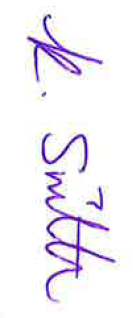 K. Smith